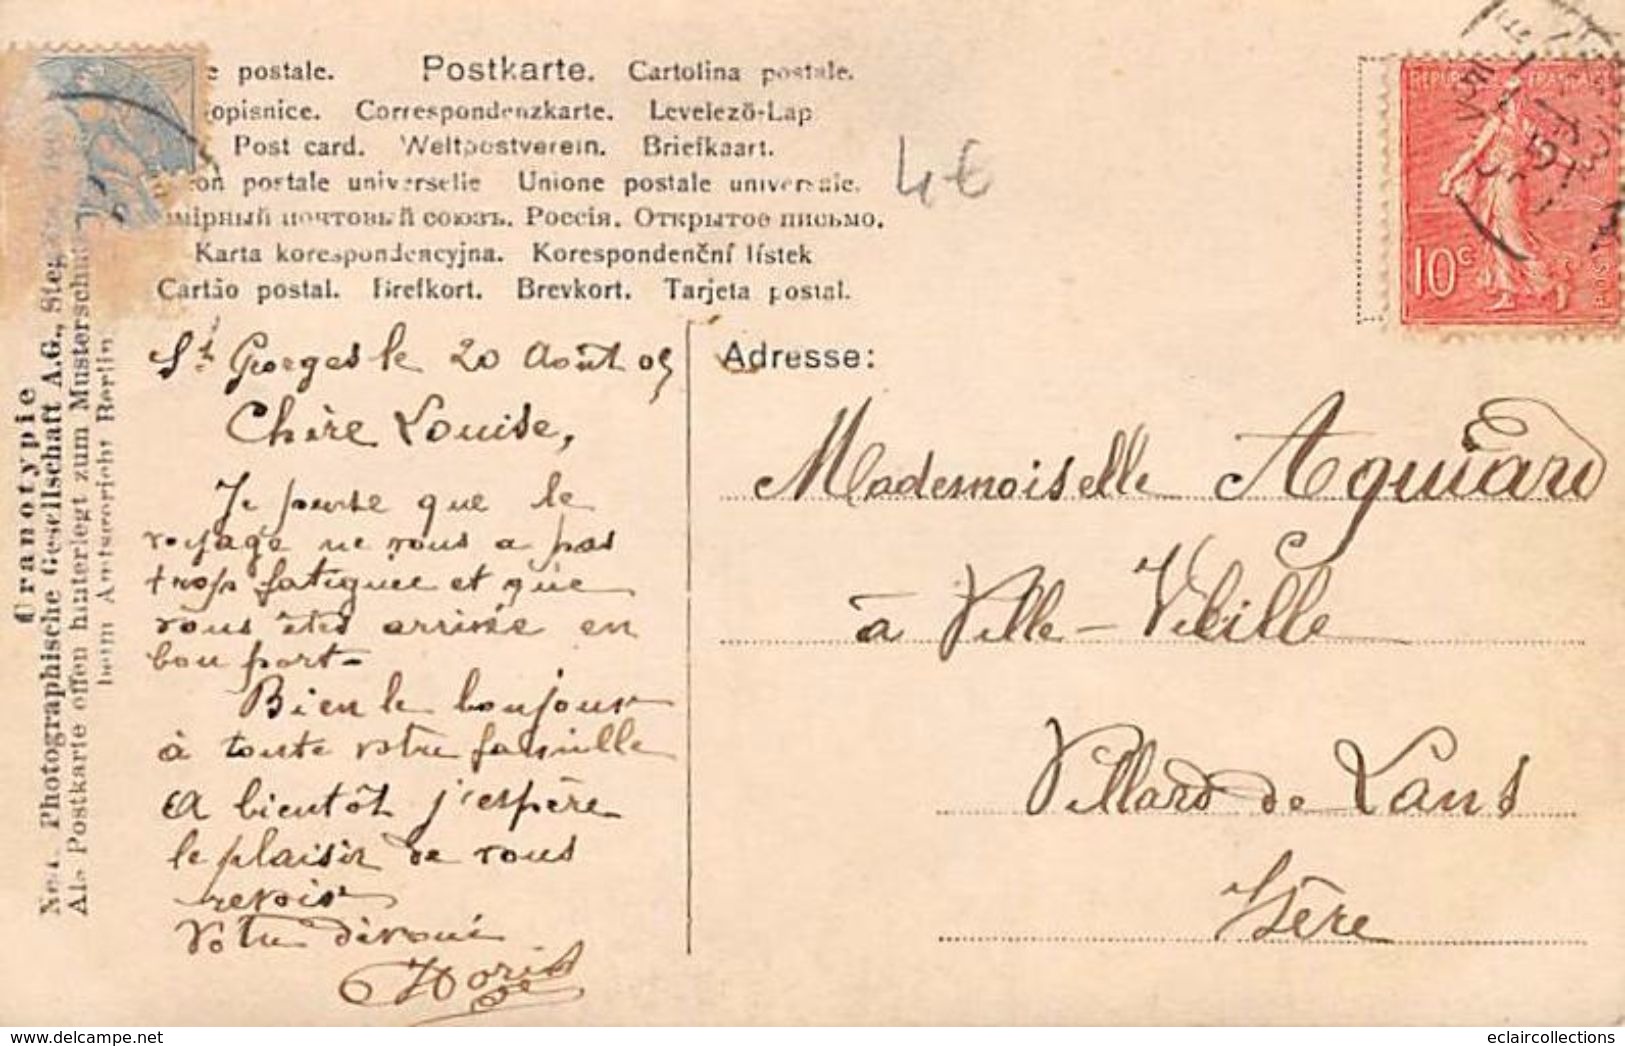 e postale. Postkarte. Cartolina postale.
opisnice. Correspondenzkarte. Levelező-Lap
Post card. Weltpostverein. Briefkaart.
on postale universelle Unione postale universale.
мірный почтовый союзъ. Россія. Открытое письмо.
Karta korespondencyjna. Korespondenční lístek
Cartão postal. Brefkort. Brevkort. Tarjeta postal.
4€
RÉPUBLIQUE FRANÇAISE
10c
Uranotypie
Neue Photographische Gesellschaft A.G., Steg
Als Postkarte offen hinterlegt zum Musterschutz
beim Amtsgericht Berlin
St Georges le 20 Août 05
Chère Louise,
Je pense que le
voyage ne vous a pas
trop fatiguée et que
vous êtes arrivée en
bon port-
Bien le bonjour
à toute votre famille
A bientôt j'espère
le plaisir de vous
revoir
Votre dévoué
Adresse:
Mademoiselle Aguiard
à Ville-Vieille
Villard de Lans
Isère
https://www.delcampe.net
eclaircollections